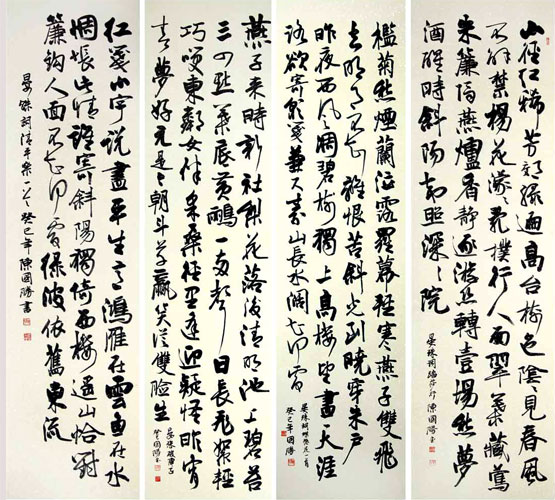 山徑红稀芳郊綠遍高台樹色陰〻見春風
不解禁楊花濛〻亂撲行人面翠葉藏鶯
朱簾隔燕爐香静逐游丝轉壹場愁夢
酒醒時斜陽却照深〻院
晏殊詞踏莎行陳國勝書
檻菊愁煙蘭泣露羅幕輕寒燕子雙飛
去明月不諳離恨苦斜光到曉穿朱户
昨夜西風凋碧樹獨上高樓望盡天涯
路欲寄彩箋兼尺素山長水闊知何處
晏殊詞蝶恋花一首
癸巳年國勝
燕子來時新社梨花落後清明池上碧苔
三四點葉底黄鸝一兩聲日長飛絮輕
巧笑東鄰女伴采桑徑里逢迎疑怪昨宵
春夢好元是今朝鬥草贏笑從雙臉生
晏殊破陣子
國勝書
红箋小字説盡平生意鴻雁在雲魚在水
惆悵此情難寄斜陽獨倚西樓遥山恰對
簾鉤人面不知何處綠波依舊東流
晏殊詞清平樂一首癸巳年陳國勝書